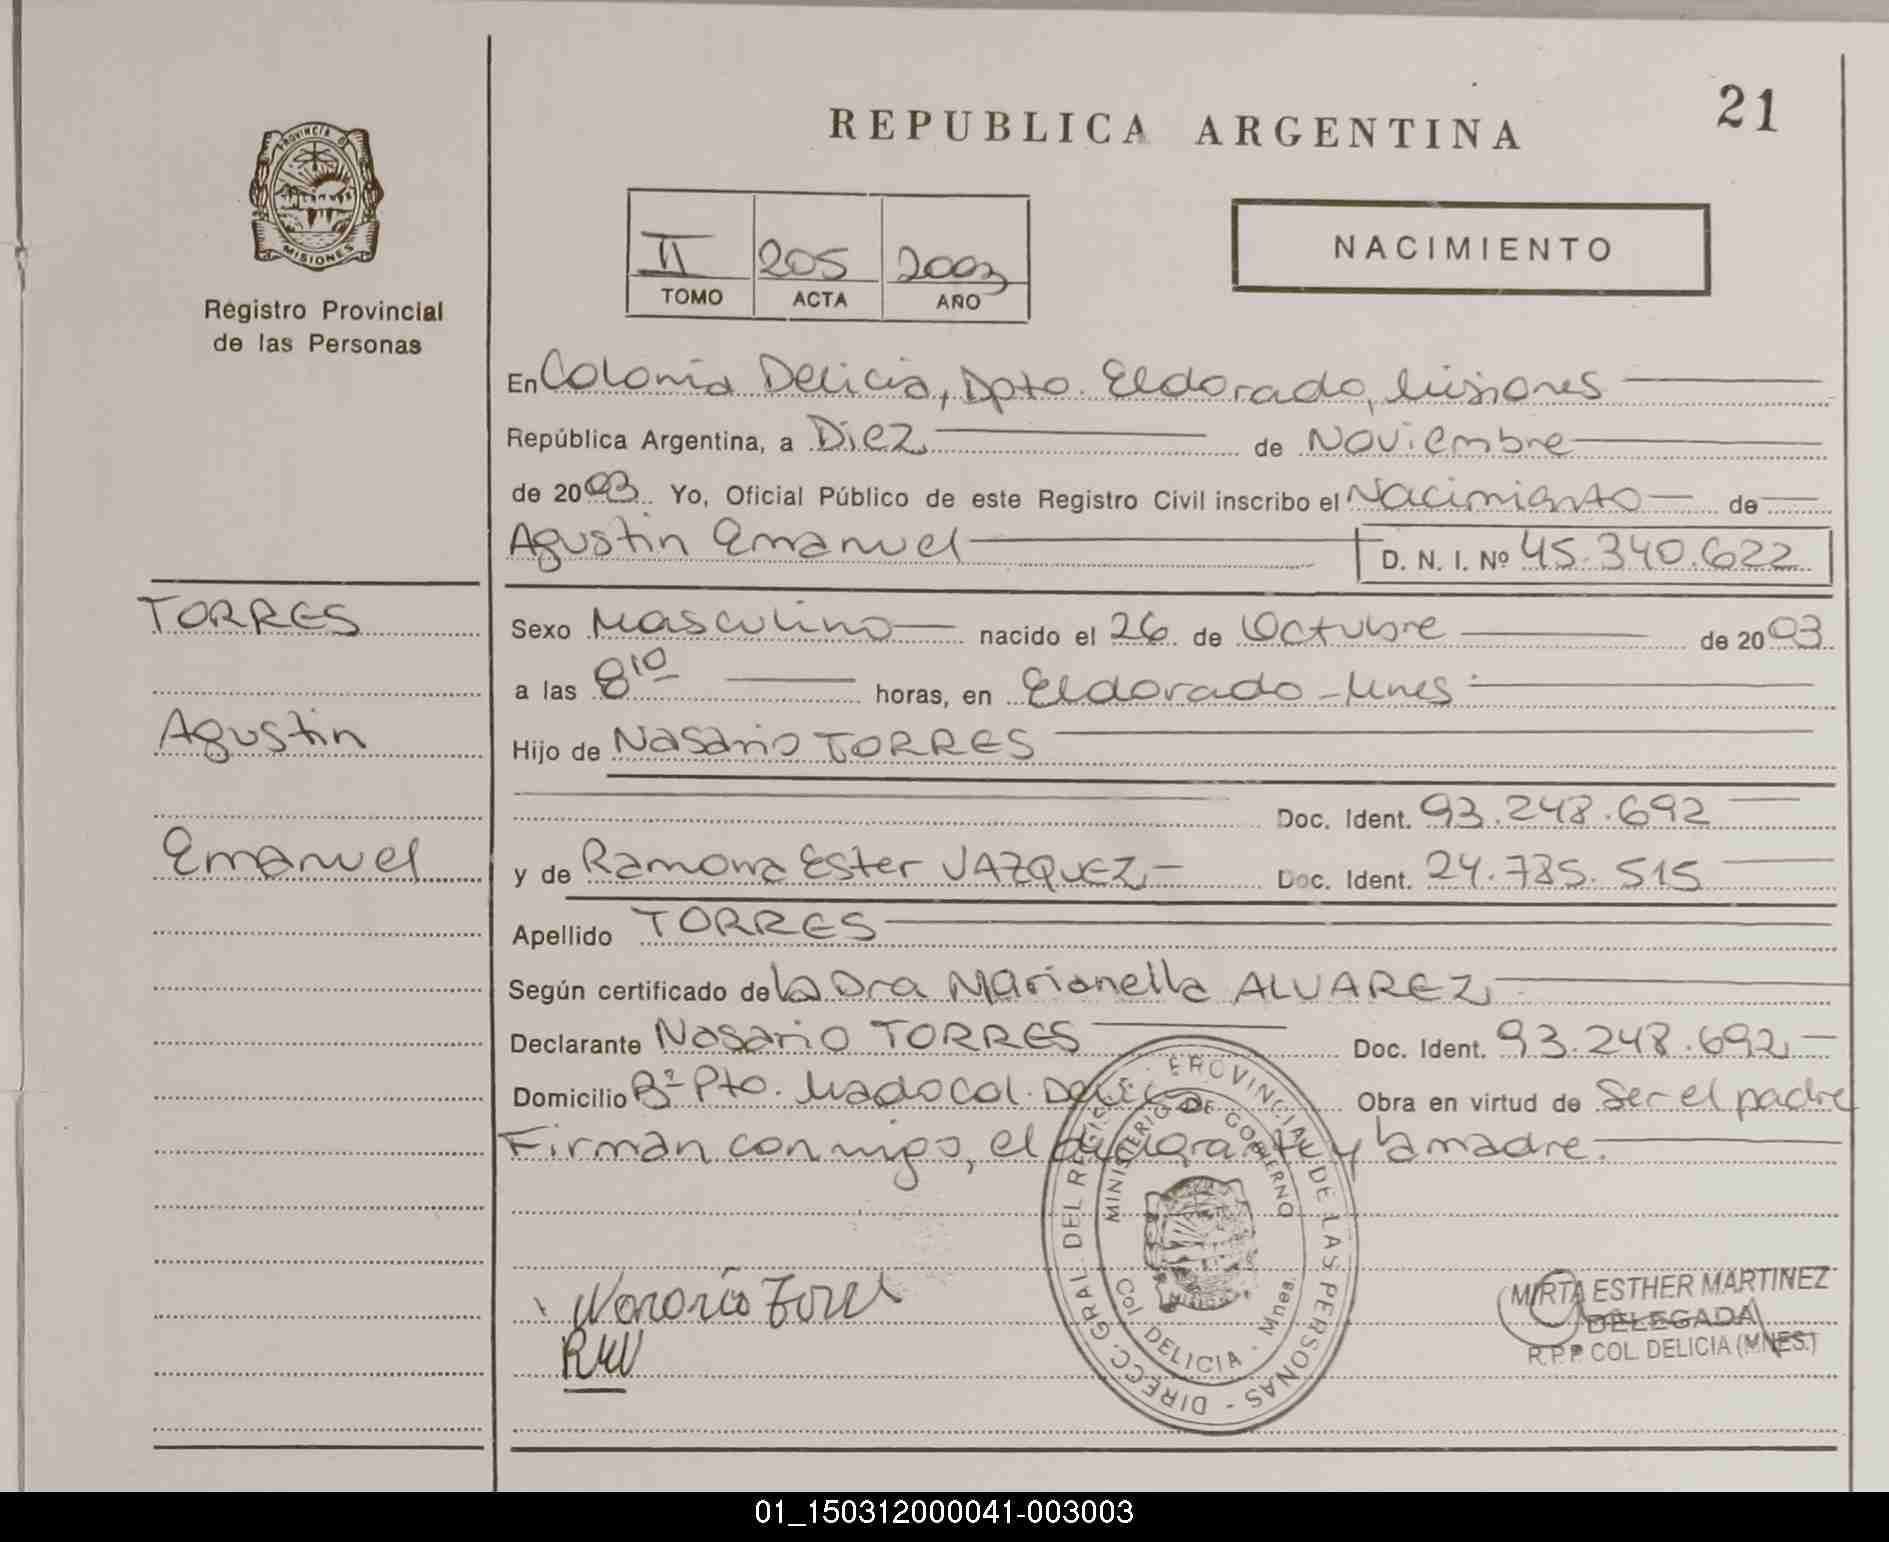 REPUBLICA ARGENTINA
21
PROVINCIA DE
MISIONES
Registro Provincial
de las Personas
II 205 2003
TOMO ACTA AÑO
NACIMIENTO
En Colonia Delicia, Dpto. Eldorado, Misiones
República Argentina, a Diez de Noviembre
de 2003 Yo, Oficial Público de este Registro Civil inscribo el Nacimiento de
Agustin Emanuel D. N. I. Nº 45.340.622
TORRES
Agustin
Emanuel
Sexo Masculino nacido el 26 de Octubre de 2003
a las 8 10 horas, en Eldorado - Mnes
Hijo de Nasario TORRES
Doc. Ident. 93.248.692
y de Ramona Ester VAZQUEZ Doc. Ident. 24.785.515
Apellido TORRES
Según certificado de la Dra Marianella ALVAREZ
Declarante Nasario TORRES Doc. Ident. 93.248.692
Domicilio Bº Pto. Mado Col. Delicia Obra en virtud de Ser el padre
Firman conmigo, el declarante y la madre.
DIRECC. GRAL. DEL REGIST. PROVINCIAL DE LAS PERSONAS -
MINISTERIO DE GOBIERNO
Col DELICIA - Mnes.
RMV
MIRTA ESTHER MARTINEZ
DELEGADA
R.P.P COL. DELICIA (MNES.)
01_150312000041-003003